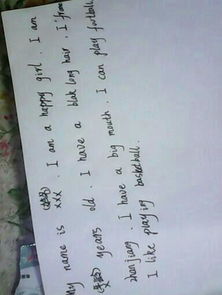 My name is xxx . I am a happy girl . I am
years old . I have a blak long hair . I from
zhenjiang . I have a big mouth . I can play football
I like playing basketball.